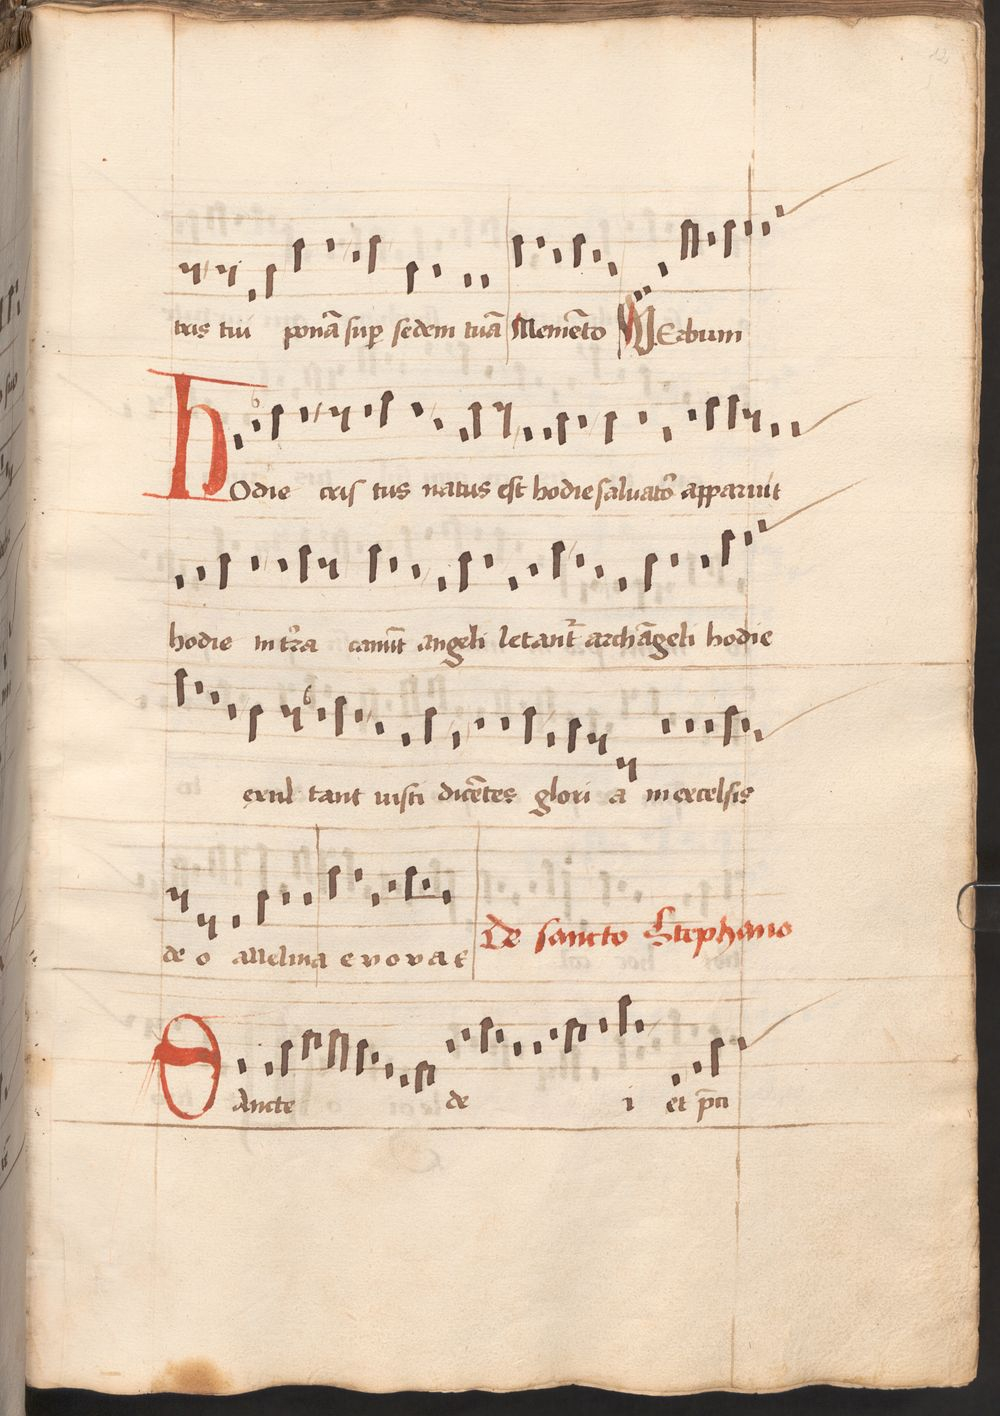 tris tui ponā sup sedem tuā Memēto Verbum
Hodie cris tus natus est hodie saluatō apparuit
hodie in tr̄a canūt angeli letant̄ archāgeli hodie
exul tant iusti dicētes glori a in excelsis
de o alleluia e v o v a e
De sancto Stephano
Sancte de i et p̄ci